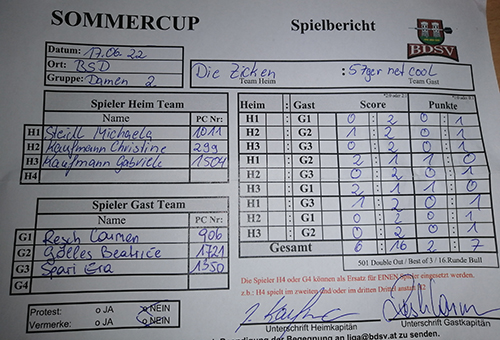 SOMMERCUP Spielbericht
BDSV
Datum: 17.06.22
Ort: BSD
Gruppe: Damen 2
Die Zicken : 57ger net cool
Team Heim Team Gast
Spieler Heim Team
Name PC Nr:
H1 Steidl Michaela 1011
H2 Kaufmann Christine 299
H3 Kaufmann Gabriele 1504
H4
Spieler Gast Team
Name PC Nr:
G1 Resch Carmen 906
G2 Gölles Beatrice 1721
G3 Spari Eva 1350
G4
Heim : Gast Score Punkte
H1 : G1 0 : 2 0 : 1
H2 : G2 0 : 2 0 : 1
H3 : G3 0 : 2 0 : 1
H1 : G2 2 : 1 1 : 0
H2 : G3 0 : 2 0 : 1
H3 : G1 0 : 2 0 : 1
H1 : G3 2 : 1 1 : 0
H2 : G1 1 : 2 0 : 1
H3 : G2 1 : 2 0 : 1
Gesamt 6 : 16 2 : 7
501 Double Out / Best of 3 / 16.Runde Bull
Die Spieler H4 oder G4 können als Ersatz für EINEN Spieler eingesetzt werden.
z.b.: H4 spielt im zweiten und/oder im dritten Drittel anstatt H2
Protest: o JA o NEIN
Vermerke: o JA o NEIN
Unterschrift Heimkapitän Unterschrift Gastkapitän
der Begegnung an liga@bdsv.at zu senden.